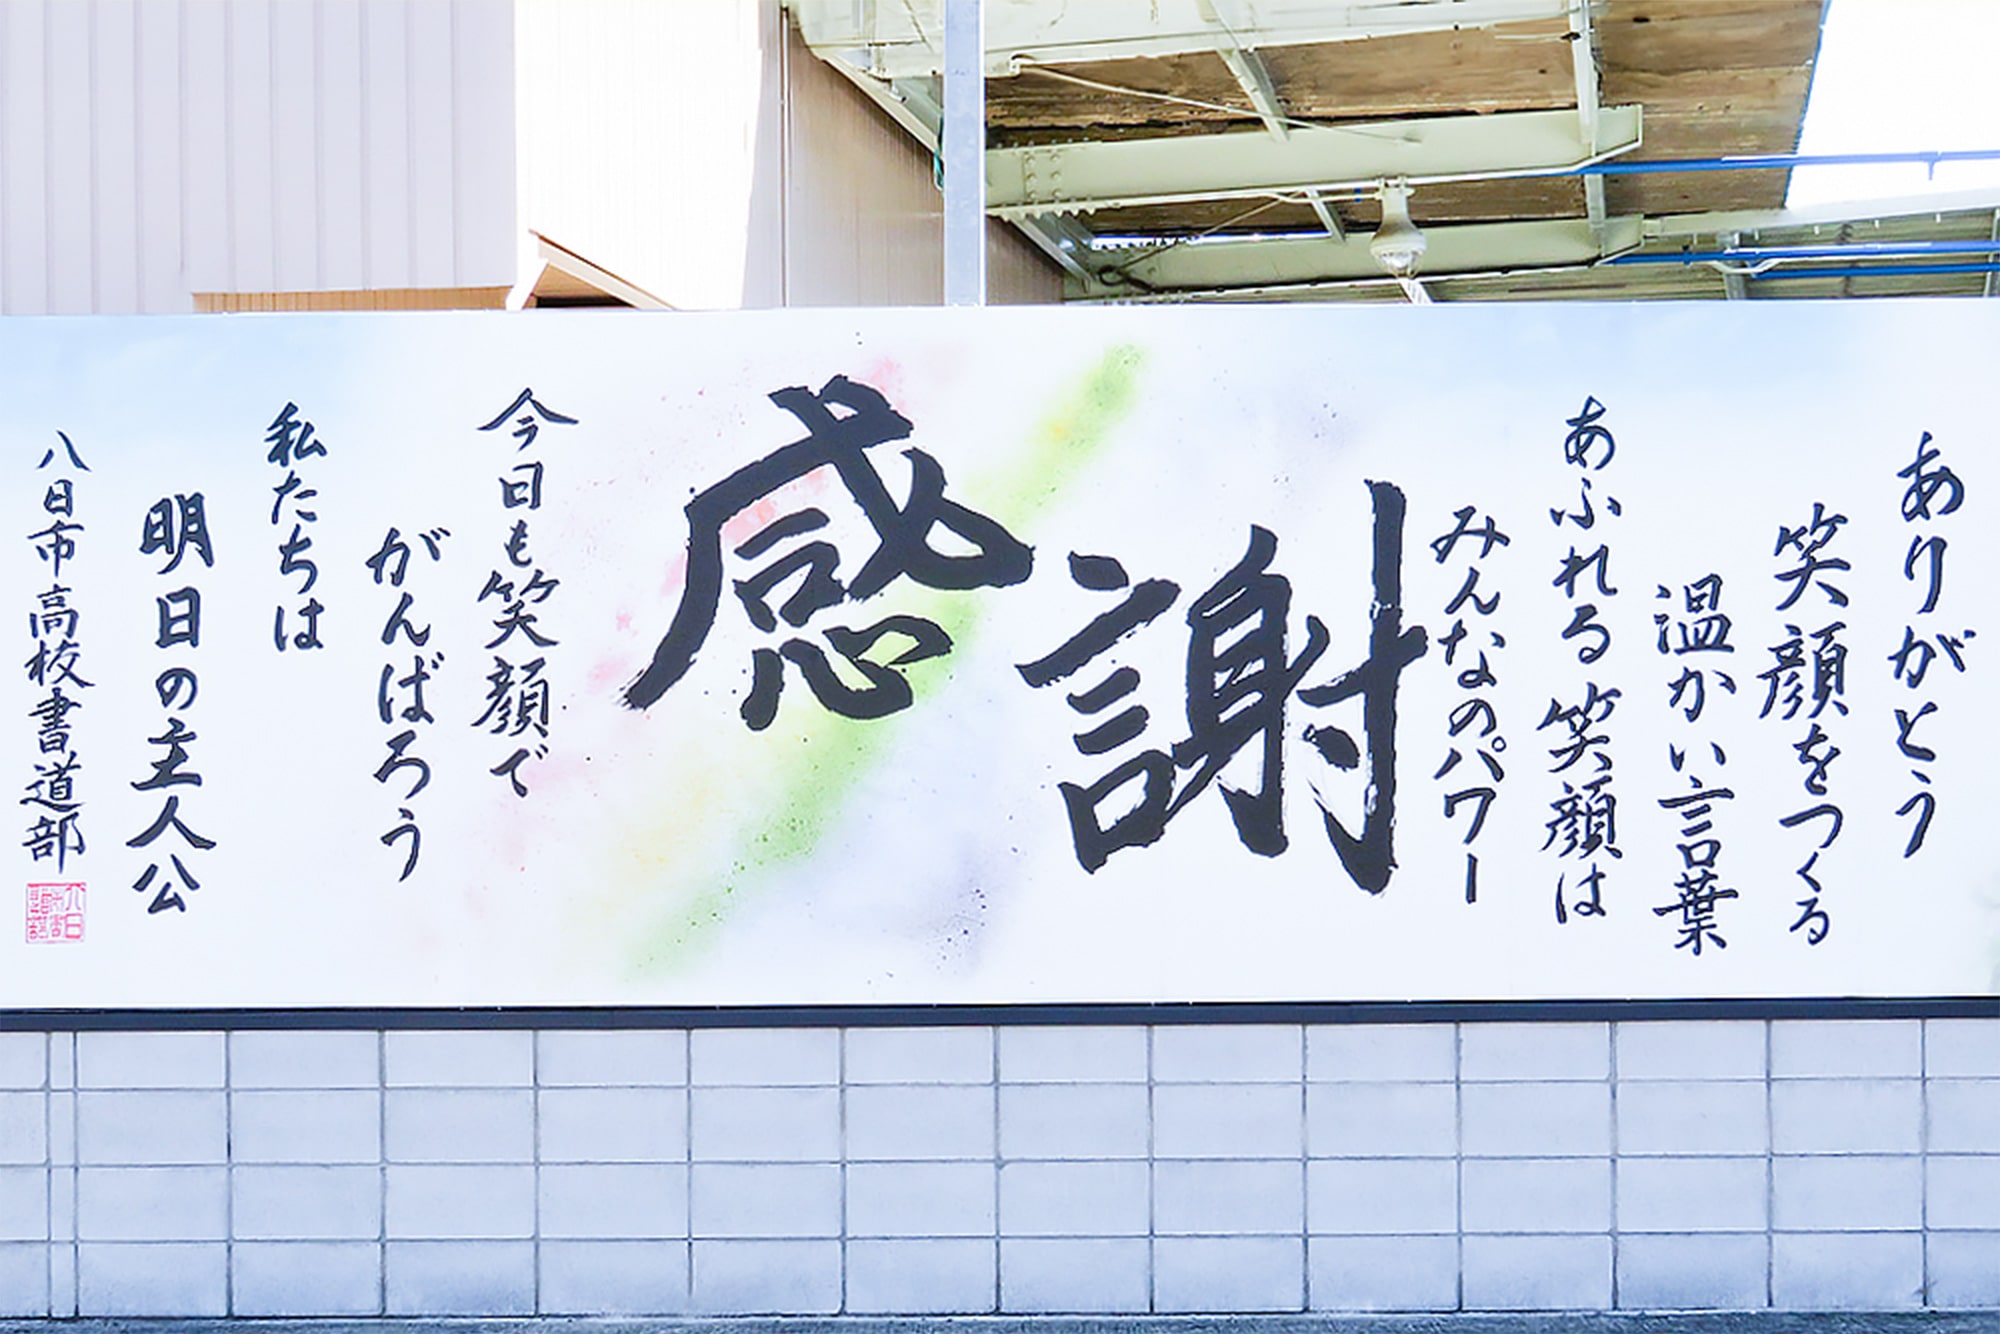 ありがとう
笑顔をつくる
温かい言葉
あふれる笑顔は
みんなのパワー
感謝
今日も笑顔で
がんばろう
私たちは
明日の主人公
八日市高校書道部